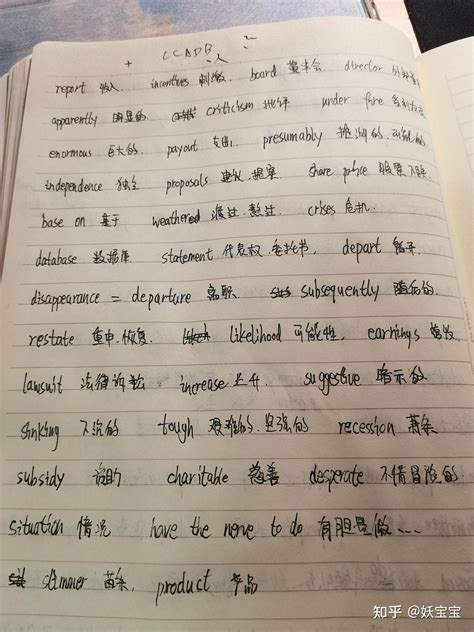 + CCADB
report 收入 incentives 刺激 board 董事会 director
apparently 明显的 criticism 批评 under fire
enormous 巨大的 payout 支出 presumably 推测的
independence 独立 proposals 建议 提案 share price
base on 基于 weathered 渡过 crises 危机
database 数据库 statement 代表权 委托书 depart 离开
disappearance = departure 离职 subsequently 随后的
restate 重申 恢复 likelihood 可能性 earnings
lawsuit 法律诉讼 increase 上升 suggestive 暗示的
sinking 下沉的 tough 艰难的 坚强的 recession 萧条
subsidy charitable 慈善 desperate 不惜冒险的
situation 情况 have the nerve to do 有胆量做...
slimmer product 产品
知乎 @妖宝宝